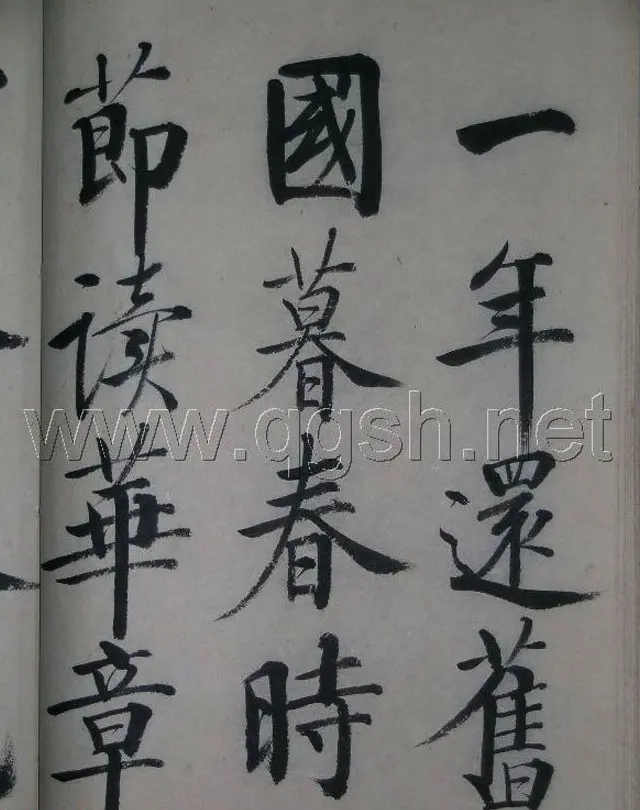 一年還舊
國暮春時
節读華章
www.qgsh.net